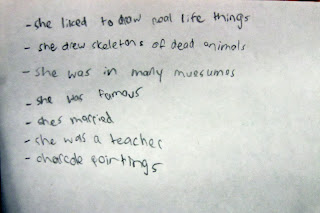 - she liked to draw real life things
- she drew skeletons of dead animals
- she was in many muesumos
- she was famous
- shes married
- she was a teacher
- charcole paintings